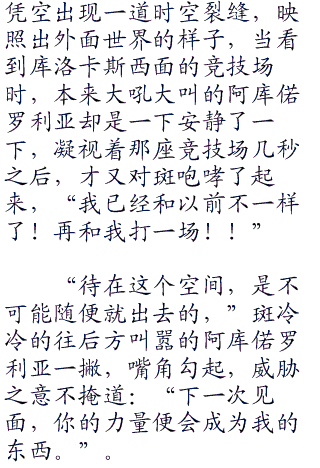 凭空出现一道时空裂缝，映
照出外面世界的样子，当看
到库洛卡斯西面的竞技场
时，本来大吼大叫的阿库偌
罗利亚却是一下安静了一
下，凝视着那座竞技场几秒
之后，才又对斑咆哮了起
来，“我已经和以前不一样
了！再和我打一场！！”
“待在这个空间，是不
可能随便就出去的，”斑冷
冷的往后方叫嚣的阿库偌罗
利亚一撇，嘴角勾起，威胁
之意不掩道：“下一次见
面，你的力量便会成为我的
东西。”。